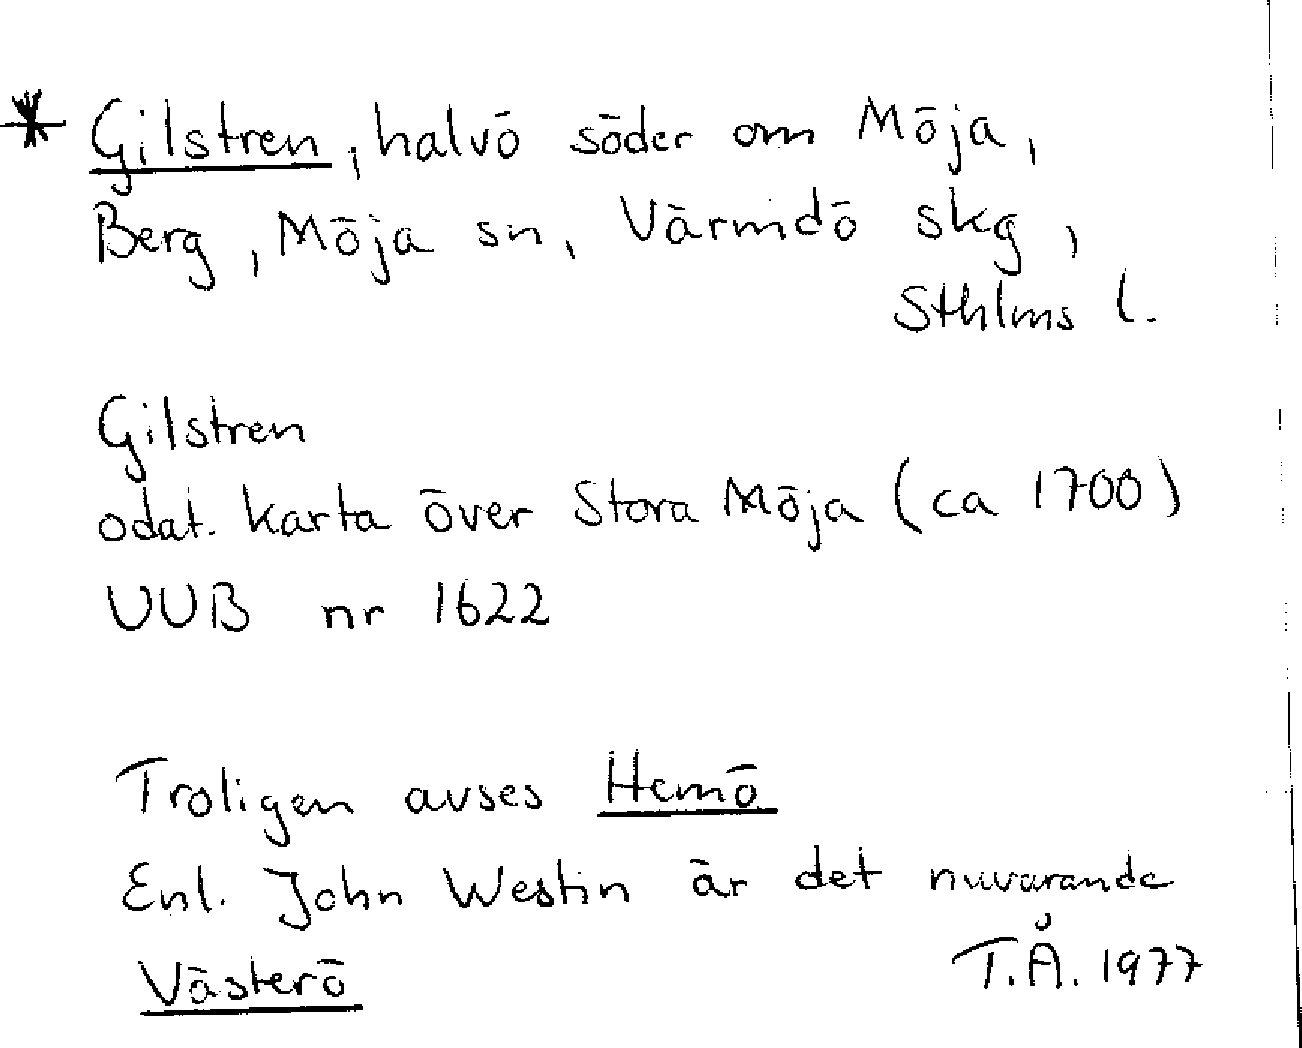 * Gilstren, halvö söder om Möja,
Berg, Möja sn, Värmdö skg,
Sthlms l.
Gilstren
odat. karta över Stora Möja (ca 1700)
UUB nr 1622
Troligen avses Hemö
Enl. John Westin är det nuvarande
Västerö
T.Å. 1977